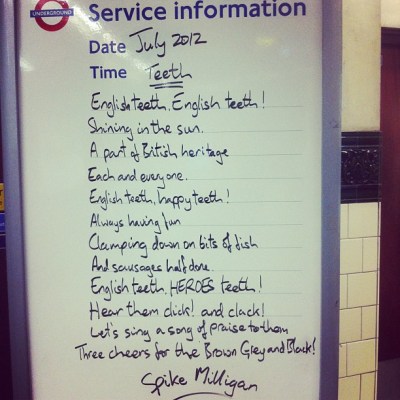 UNDERGROUND
Service information
Date July 2012
Time Teeth
English teeth. English teeth!
Shining in the sun.
A part of British heritage
Each and everyone.
English teeth, happy teeth!
Always having fun
Clamping down on bits of fish
And sausages half done.
English teeth. HEROES teeth!
Hear them click! and clack!
Let's sing a song of praise to them
Three cheers for the Brown Grey and Black!
Spike Milligan